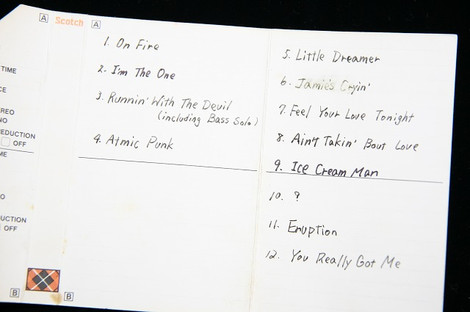 A Scotch
TIME
CE
EREO
NO
EDUCTION
OFF
ME
O
UCTION
OFF
B
B
1. On Fire
2. I'm The One
3. Runnin' With The Devil
(including Bass Solo)
4. Atmic Punk
5. Little Dreamer
6. Jamie's Cryin'
7. Feel Your Love Tonight
8. Ain't Takin' Bout Love
9. Ice Cream Man
10. ?
11. Eruption
12. You Really Got Me
A